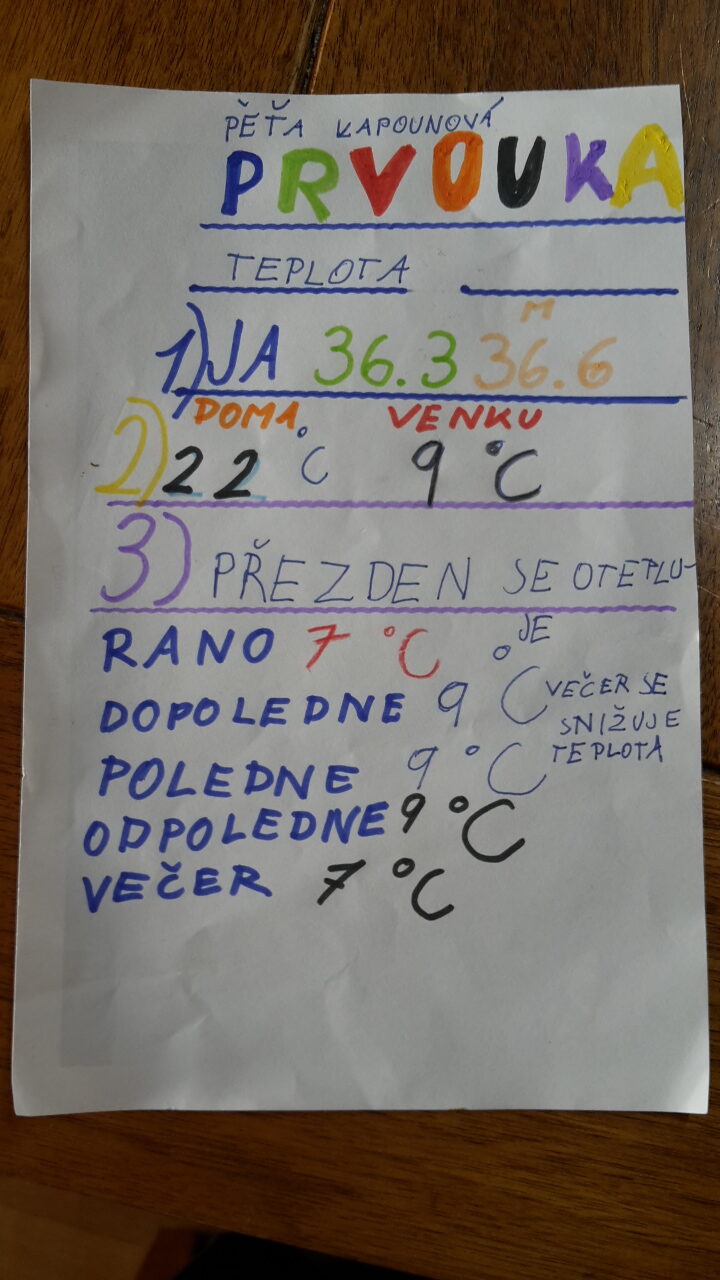 PĚŤA KAPOUNOVÁ
PRVOUKA
TEPLOTA
M
1) JA 36.3 36.6
DOMA VENKU
2) 22 °C 9 °C
3) PŘEZDEN SE OTEPLU-
JE
RANO 7 °C
DOPOLEDNE 9 °C
VEČER SE
SNIŽUJE
TEPLOTA
POLEDNE 9 °C
ODPOLEDNE 9 °C
VEČER 7 °C